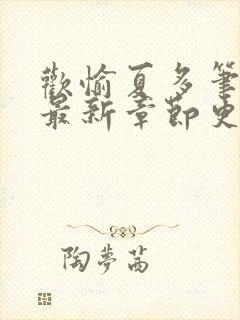 歡愉夏多筆
最新章節史
陶夢茜